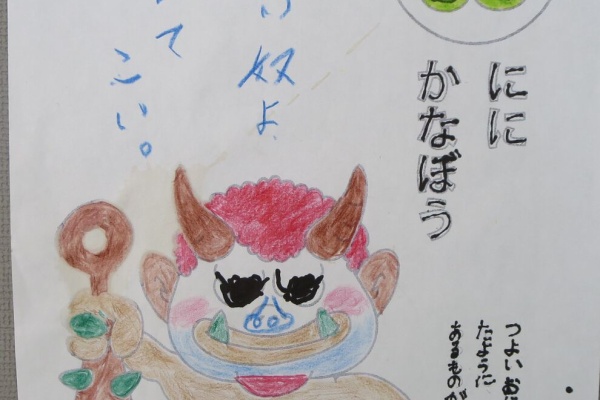 にに
かなぼう
奴よ
て
こい。
つよいおに
たように
あるものが